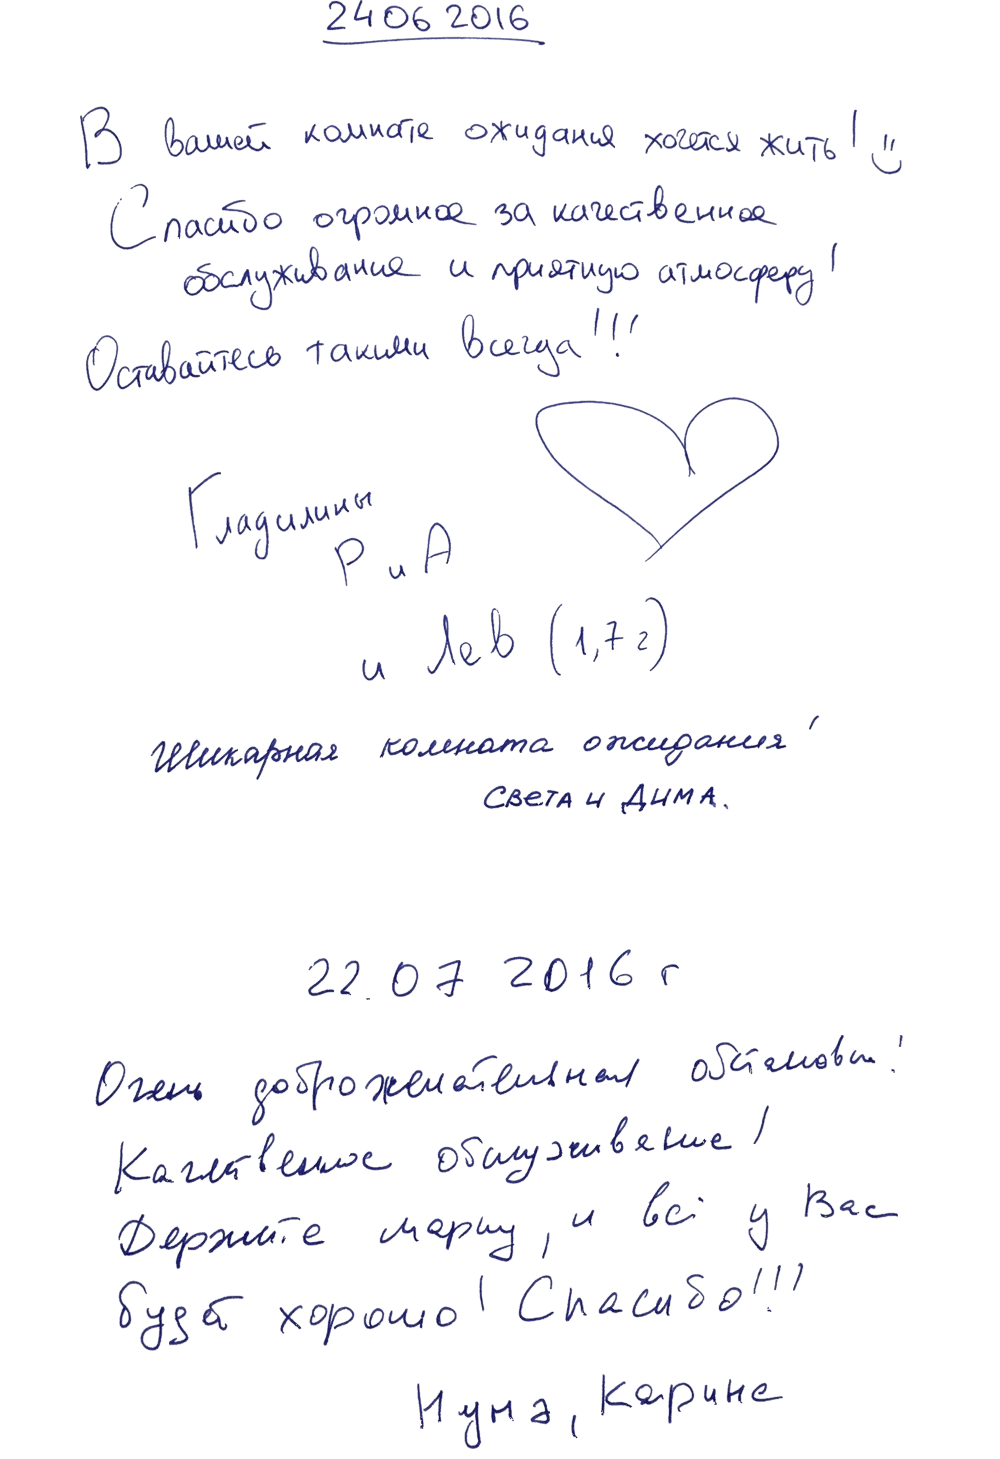 24 06 2016
В вашей комнате ожидания хочется жить!
Спасибо огромное за качественное
обслуживание и приятную атмосферу!
Оставайтесь такими всегда!!!
Гладилины
Р и А
и Лев (1,7 г)
Шикарная комната ожидания!
Света и Дима.
22.07 2016 г
Очень доброжелательная обстановка!
Качественное обслуживание!
Держите марку, и всё у Вас
будет хорошо! Спасибо!!!
Карине